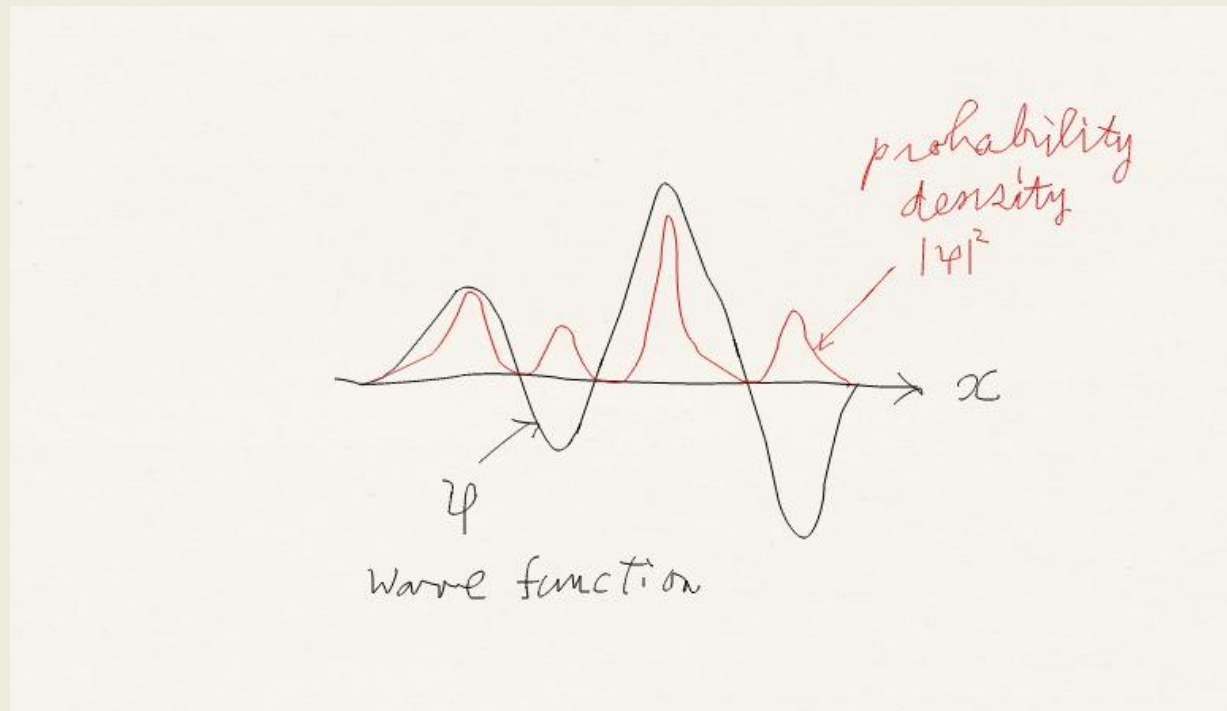 probability
density
|ψ|²
x
ψ
wave function